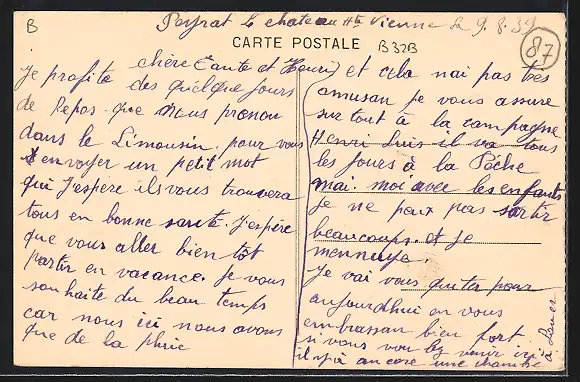 B
Peyrat le chateau Hte Vienne le 9. 8. 39
CARTE POSTALE
B32B
87
chère Tante et Henri
Je profite des quelque jours
de Repos que nous prenon
dans le Limousin. pour vous
envoyer un petit mot
qui J'espère ils vous trouvera
tous en bonne santé. J'espère
que vous aller bien tôt
partir en vacance. Je vous
souhaite du beau temps
car nous ici nous avons
que de la pluie
et cela nai pas très
amusan je vous assure
sur tout à la campagne
Henri Luis il va tous
les Jours à la Pêche
mai. moi avec les enfants
je ne peux pas sortir
beaucoups. et je
mennuye.
Je vai vous quiter pour
aujourdhui en vous
embrassan bien fort
si vous voulez venir ici
il y à ancore une chambre
à Louer